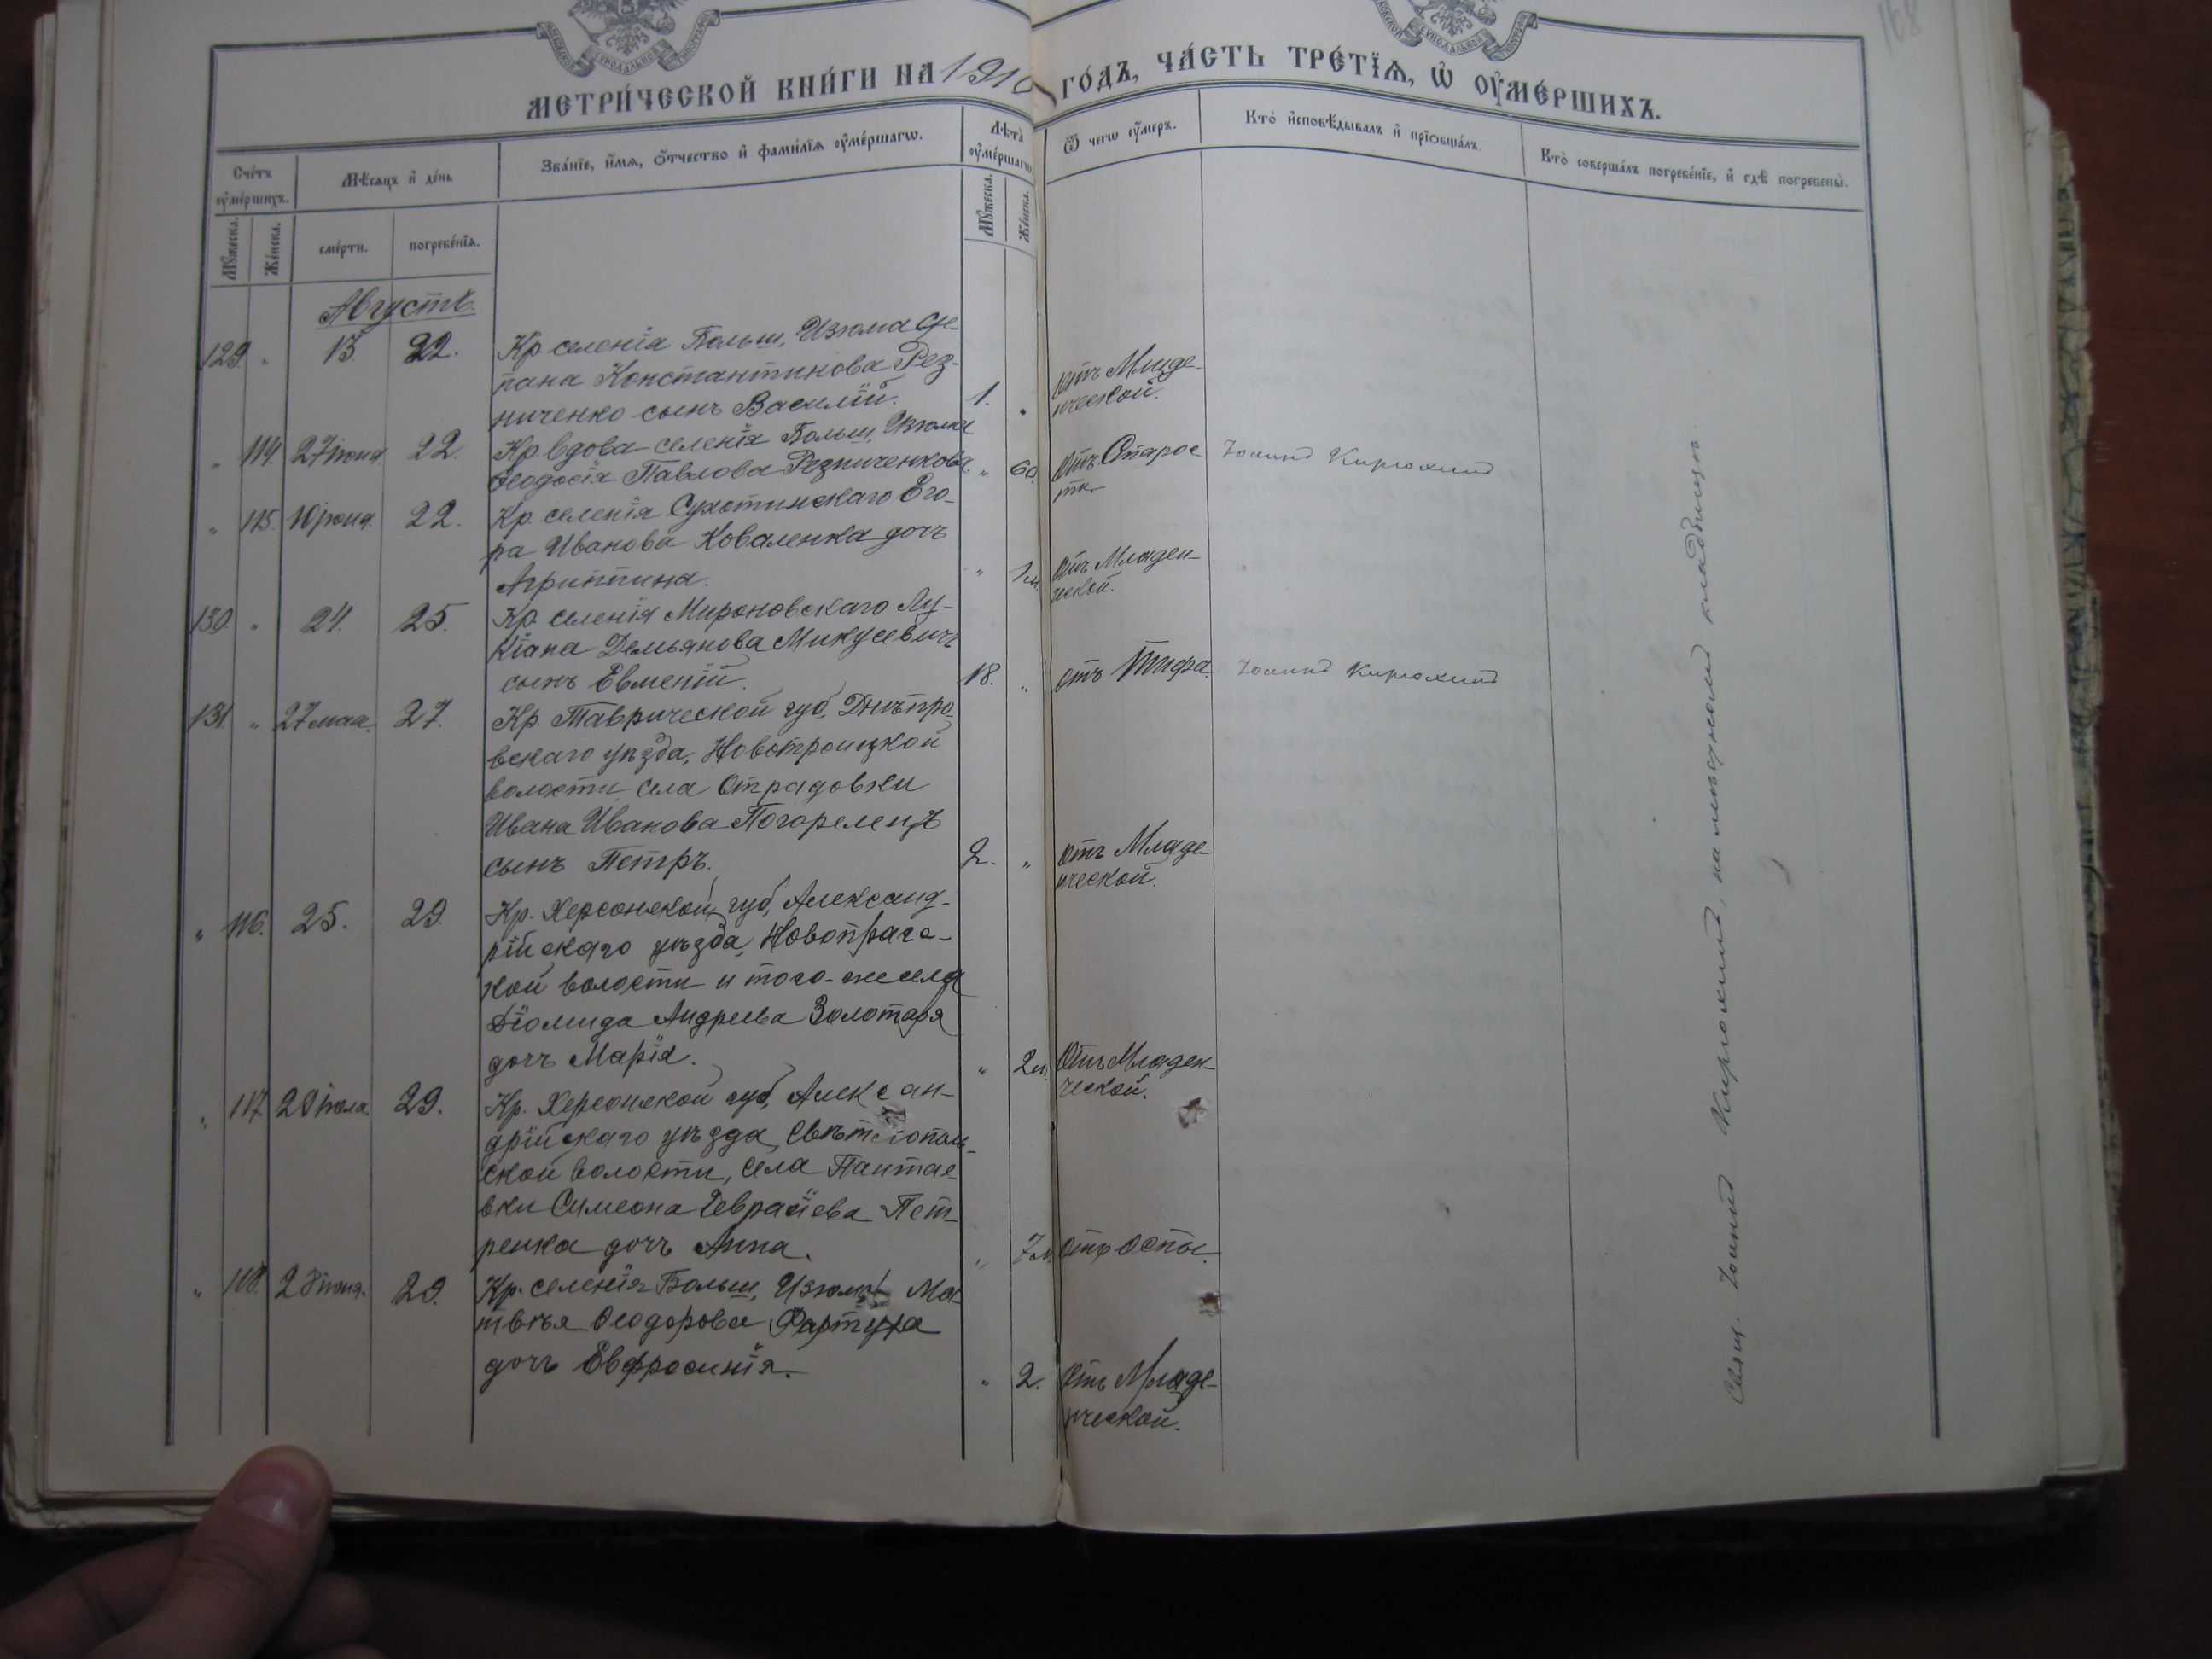 168
МЕТРИ́ЧЕСКОЙ КНИ́ГИ НА 1910 ГО́ДЪ, ЧА́СТЬ ТРЕ́ТЇѦ, Ѡ҆ ОУ҆МЕ́РШИХЪ.
Сче́тъ оу҆ме́ршихъ.
Мѣ́сяцъ и҆ де́нь
Зва́нїе, и҆́мѧ, ѻ҆́тчество и҆ фами́лїѧ оу҆ме́ршагѡ.
Лѣ́та оу҆ме́ршагѡ.
Ѿ чегѡ̀ оу҆́меръ.
Кто̀ и҆сповѣ́дывалъ и҆ прїѡбща́лъ.
Кто̀ соверша́лъ погребе́нїе, и҆ гдѣ̀ погребены̀.
Мꙋ́жеска.
Же́нска.
сме́рти.
погребе́нїѧ.
Мꙋ́жеска.
Же́нска.
Августъ.
129. " 13. 22. Кр. селенія Больш. Изюма Сте-
пана Константинова Рез-
ниченко сынъ Василій. 1. " отъ Младе-
нческой.
" 114. 27 іюня. 22. Кр. вдова селенія Больш. Изюма
Ѳеодосія Павлова Резниченкова " 60. отъ Старос
ти Іоаннъ Кирюхинъ
" 115. 10 іюня. 22. Кр. селенія Сухотинскаго Его-
ра Иванова Коваленка дочь
Агриппина. " 1 м. отъ Младен-
ческой.
130. " 24. 25. Кр. селенія Мироновскаго Лу-
кіана Демьянова Микусевичъ
сынъ Евменій. 18. " отъ Тифа. Іоаннъ Кирюхинъ
131 " 27 мая. 27. Кр. Таврической губ. Днѣпро-
вскаго уѣзда, Новотроицкой
волости села Отрадовки
Ивана Иванова Погорелецъ
сынъ Петръ. 2. " отъ Младе-
нческой.
" 116. 25. 29. Кр. Херсонской губ. Александ-
рійскаго уѣзда, Новопрагс-
кой волости и того-же села
Діомида Андреева Золотаря
дочь Марія. " 2 м. Отъ Младен-
ческой.
" 117. 20 іюля. 29. Кр. Херсонской губ. Алексан-
дрійскаго уѣзда,
ской волости, села Пантае-
вки Симеона Пет-
ренка дочь Анна. " 7 м. отъ оспы.
" 118. 2 іюня. 29. Кр. селенія Больш. Изюма Ма-
твѣя Ѳеодорова
дочь Евфросинія. " 2. отъ Младе-
нческой.
Свящ. Іоаннъ Кирюхинъ, на мѣстномъ кладбищѣ.